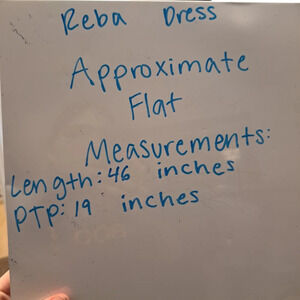 Reba Dress
Approximate
Flat
Measurements:
Length: 46 inches
PTP: 19 inches